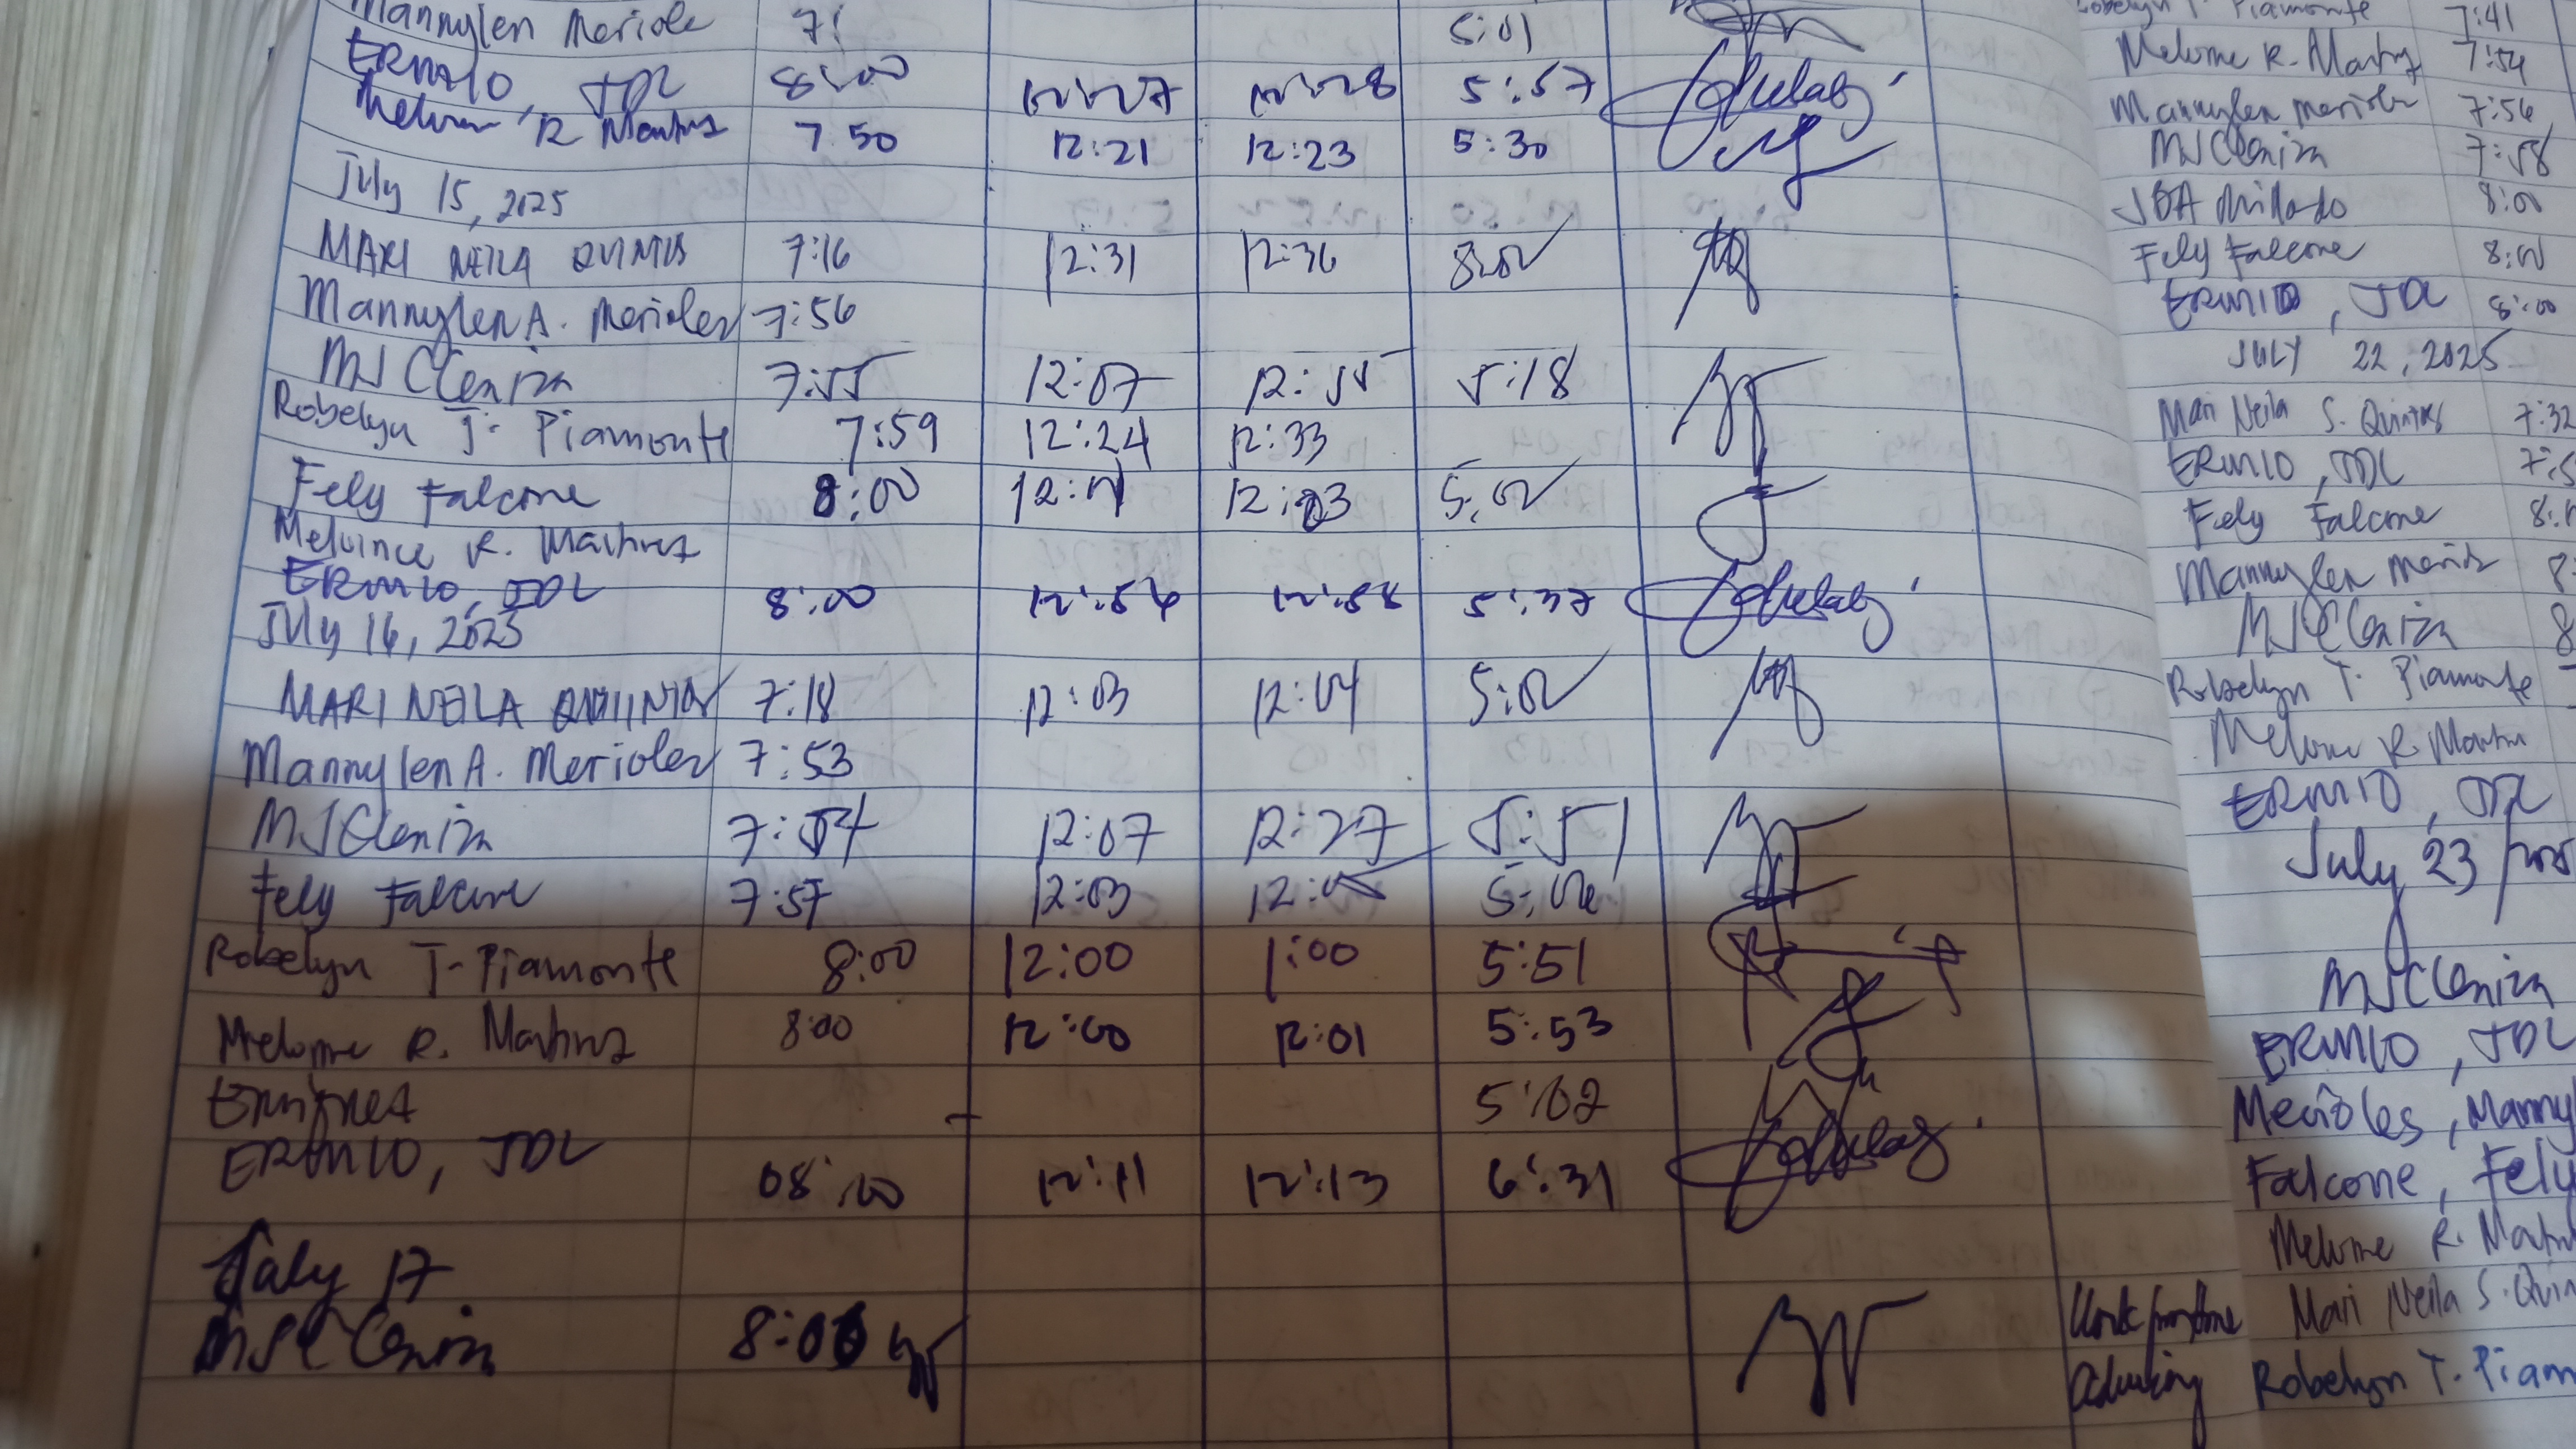 Mannylen Meriole 7: 5:01
ERMIO, JDL 8:00 12:27 12:28 5:57
R 7 50 12:21 12:23 5:30
July 15, 2025
MARI NEILA QUINTOS 7:16 12:31 12:36
Mannylen A. Merioles 7:56
MJCCleniza 7:55 12:07 12:55 5:18
Robelyn T. Piamonte 7:59 12:24 12:33
Fely Falcone 8:00 12:03 5:02
Melvince R. Martinez
ERMIO, JDL 8:00 12:54 12:58 5:37
July 16, 2025
MARI NEILA 7:18 12:03 12:04 5:02
Mannylen A. Merioles 7:53
MJCCleniza 7:54 12:07 12:27 5:51
Fely Falcone 7:57 12:03 5:06
Robelyn T. Piamonte 8:00 12:00 1:00 5:51
R. Martinez 8:00 12:00 12:01 5:53
5:02
ERMIO, JDL 08:00 12:11 12:13 6:31
July 17
MJCCleniza 8:00
Robelyn T. Piamonte 7:41
Melvine R. Martinez 7:54
Mannylen Merioles 7:56
MJCCleniza 7:58
JBA 8:00
Fely Falcone 8:00
ERMIO, JDL 8:00
JULY 22, 2025
Mari Neila S. Quintos 7:32
ERMIO, JDL 7:5
Fely Falcone 8:
Mannylen 8:
MJCCleniza 8
Robelyn T. Piamonte
Melvine R. Martinez
ERMIO, JDL
July 23
MJCCleniza
ERMIO, JDL
Merioles, Manny
Falcone, Fely
Melvine R. Mart
Mari Neila S. Quin
Robelyn T. Piam